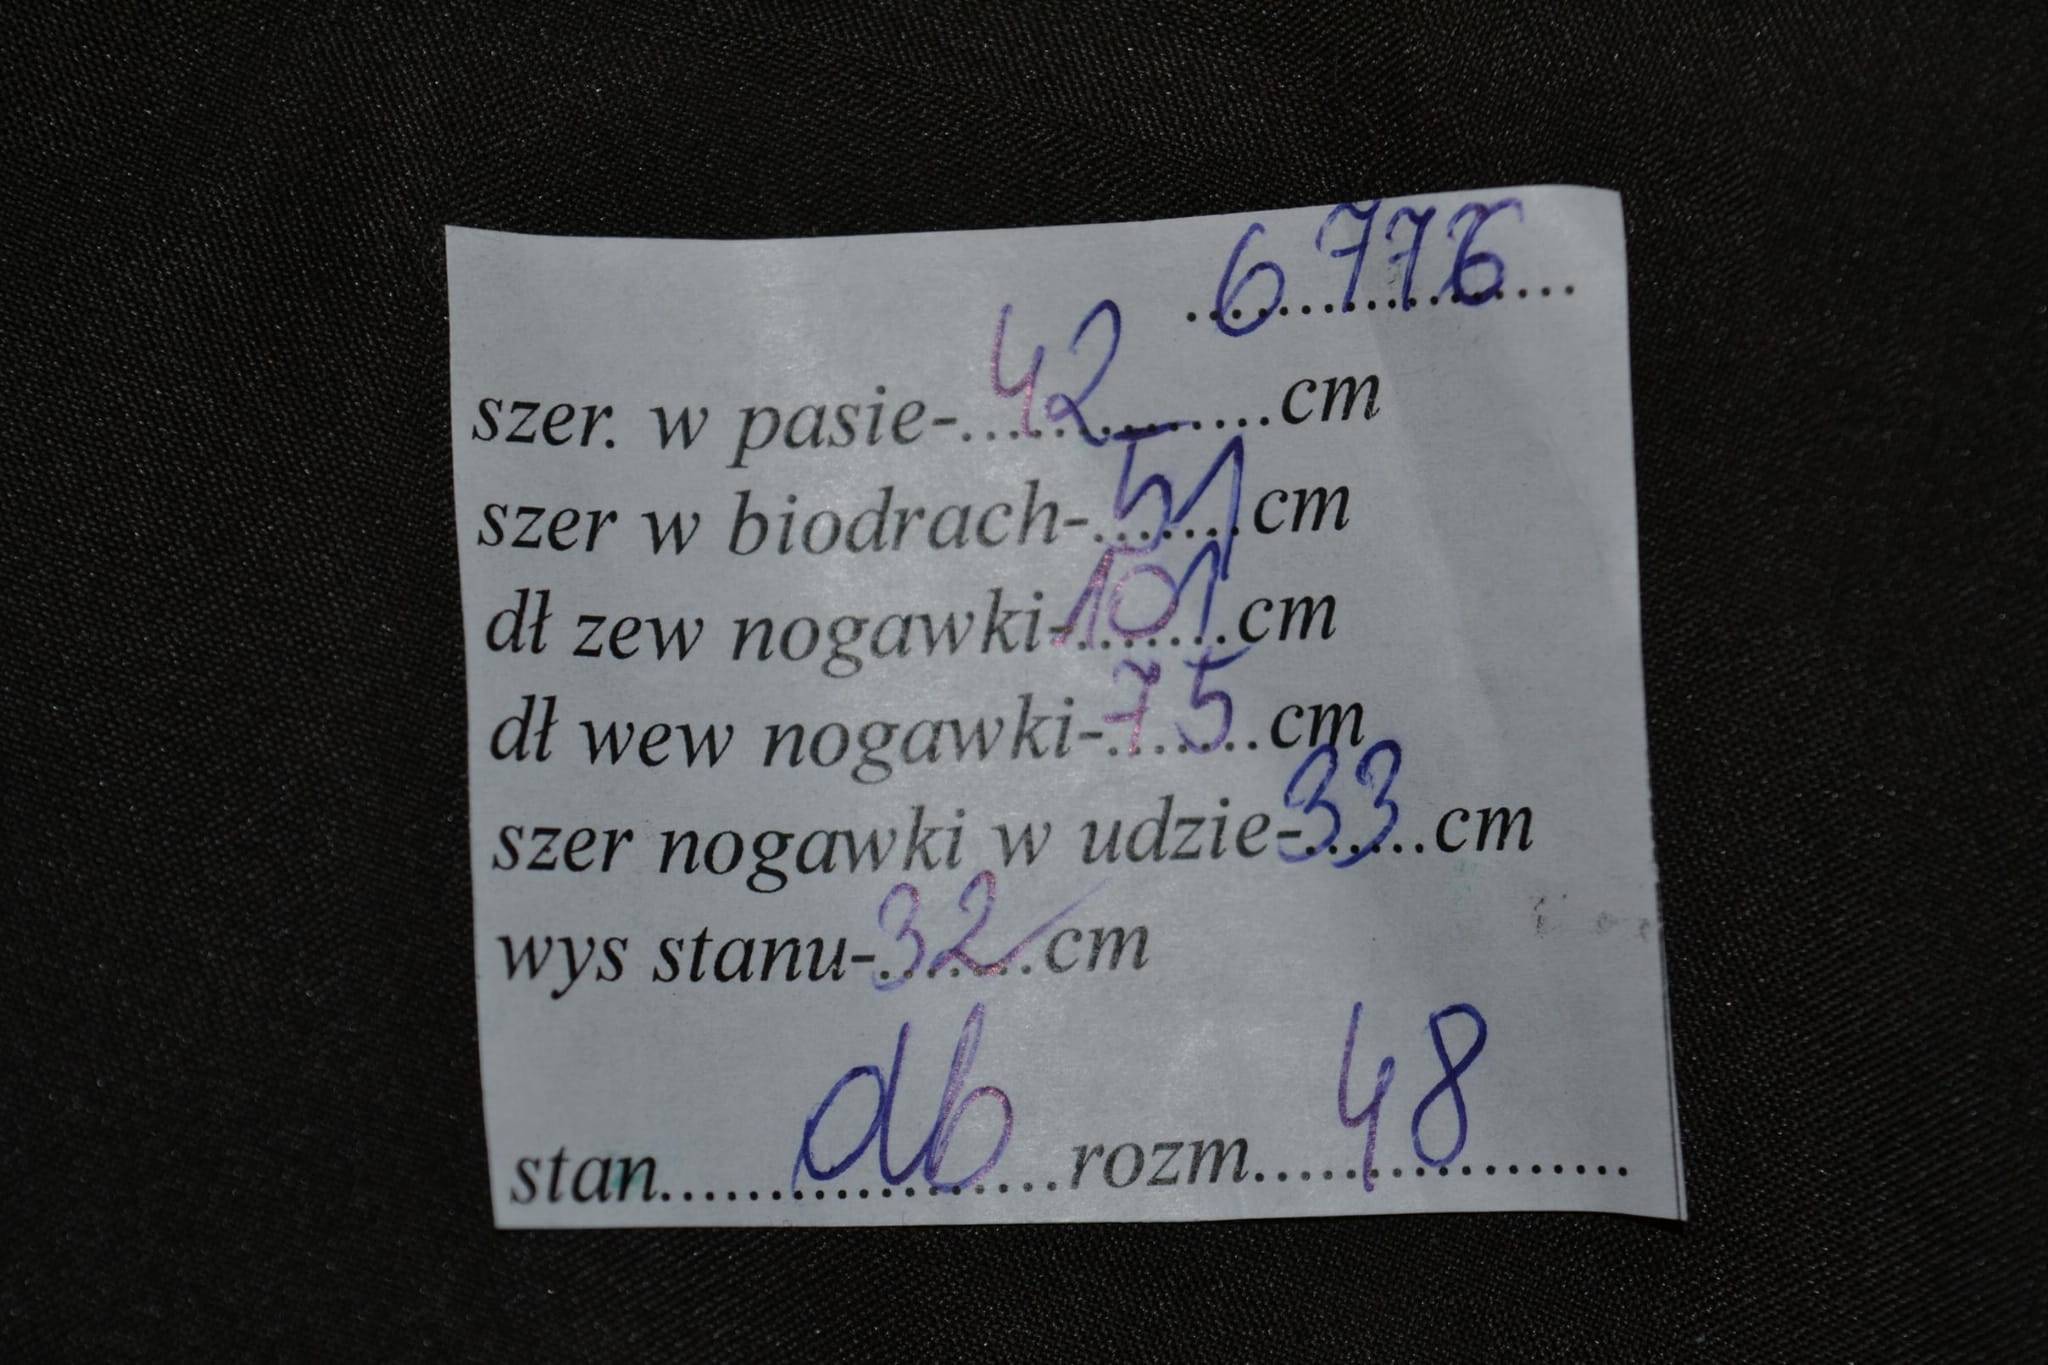 6776
szer. w pasie-42..........cm
szer w biodrach-51cm
dł zew nogawki-101cm
dł wew nogawki-75cm
szer nogawki w udzie-33cm
wys stanu-32cm
stan..........db..........rozm..........48..........